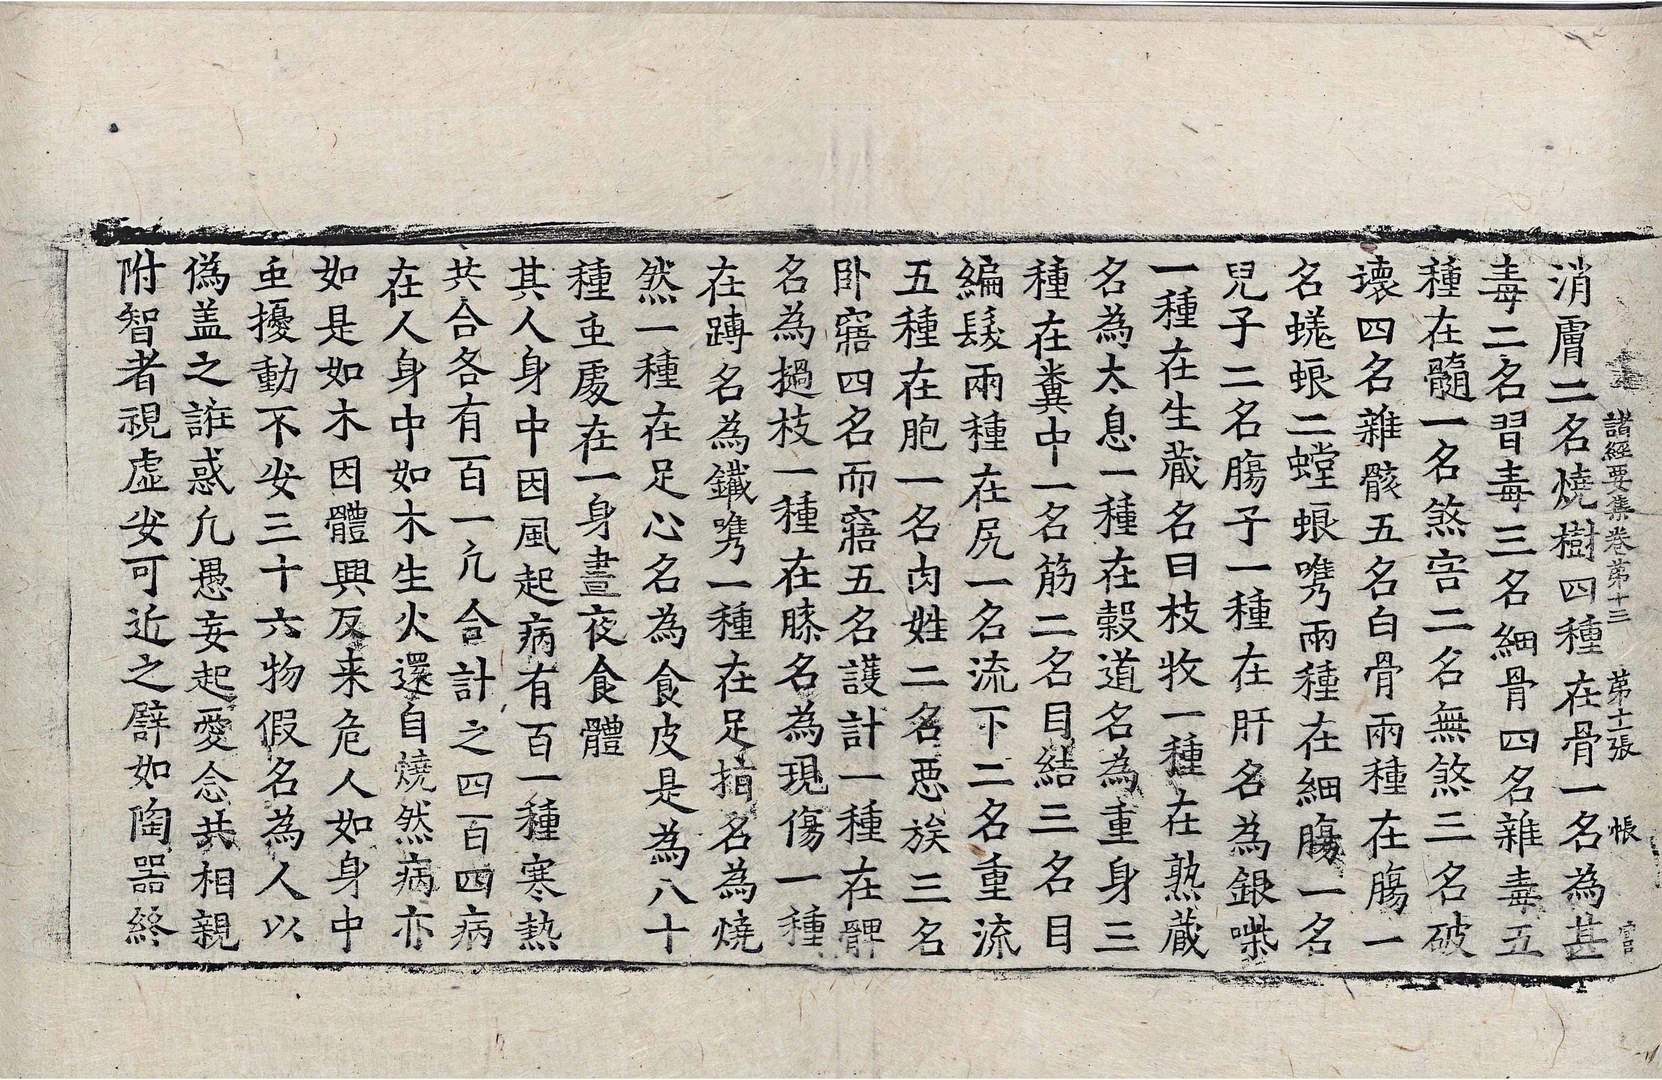 諸經要集卷第十三　第十一張　帳　官
消膚二名燒樹四種在骨一名為甚
毒二名習毒三名細骨四名雜毒五
種在髓一名煞害二名無煞三名破
壞四名雜骸五名白骨兩種在膓一
名蜣蜋二螳蜋嘴兩種在細膓一名
兒子二名膓子一種在肝名為銀喍
一種在生蔵名曰枝牧一種在熟蔵
名為太息一種在穀道名為重身三
種在糞中一名筋二名目結三名目
編髮兩種在尻一名流下二名重流
五種在胞一名肉姓二名惡族三名
卧寤四名而寤五名護計一種在髀
名為撾枝一種在膝名為現傷一種
在䏝名為鐵嘴一種在足指名為燒
然一種在足心名為食皮是為八十
種䖝處在一身晝夜食體
其人身中因風起病有百一種寒熱
共合各有百一凢合計之四百四病
在人身中如木生火還自燒然病亦
如是如木因體興反来危人如身中
䖝擾動不安三十六物假名為人以
偽盖之誑惑凢愚妄起愛念共相親
附智者視虛安可近之譬如陶器終